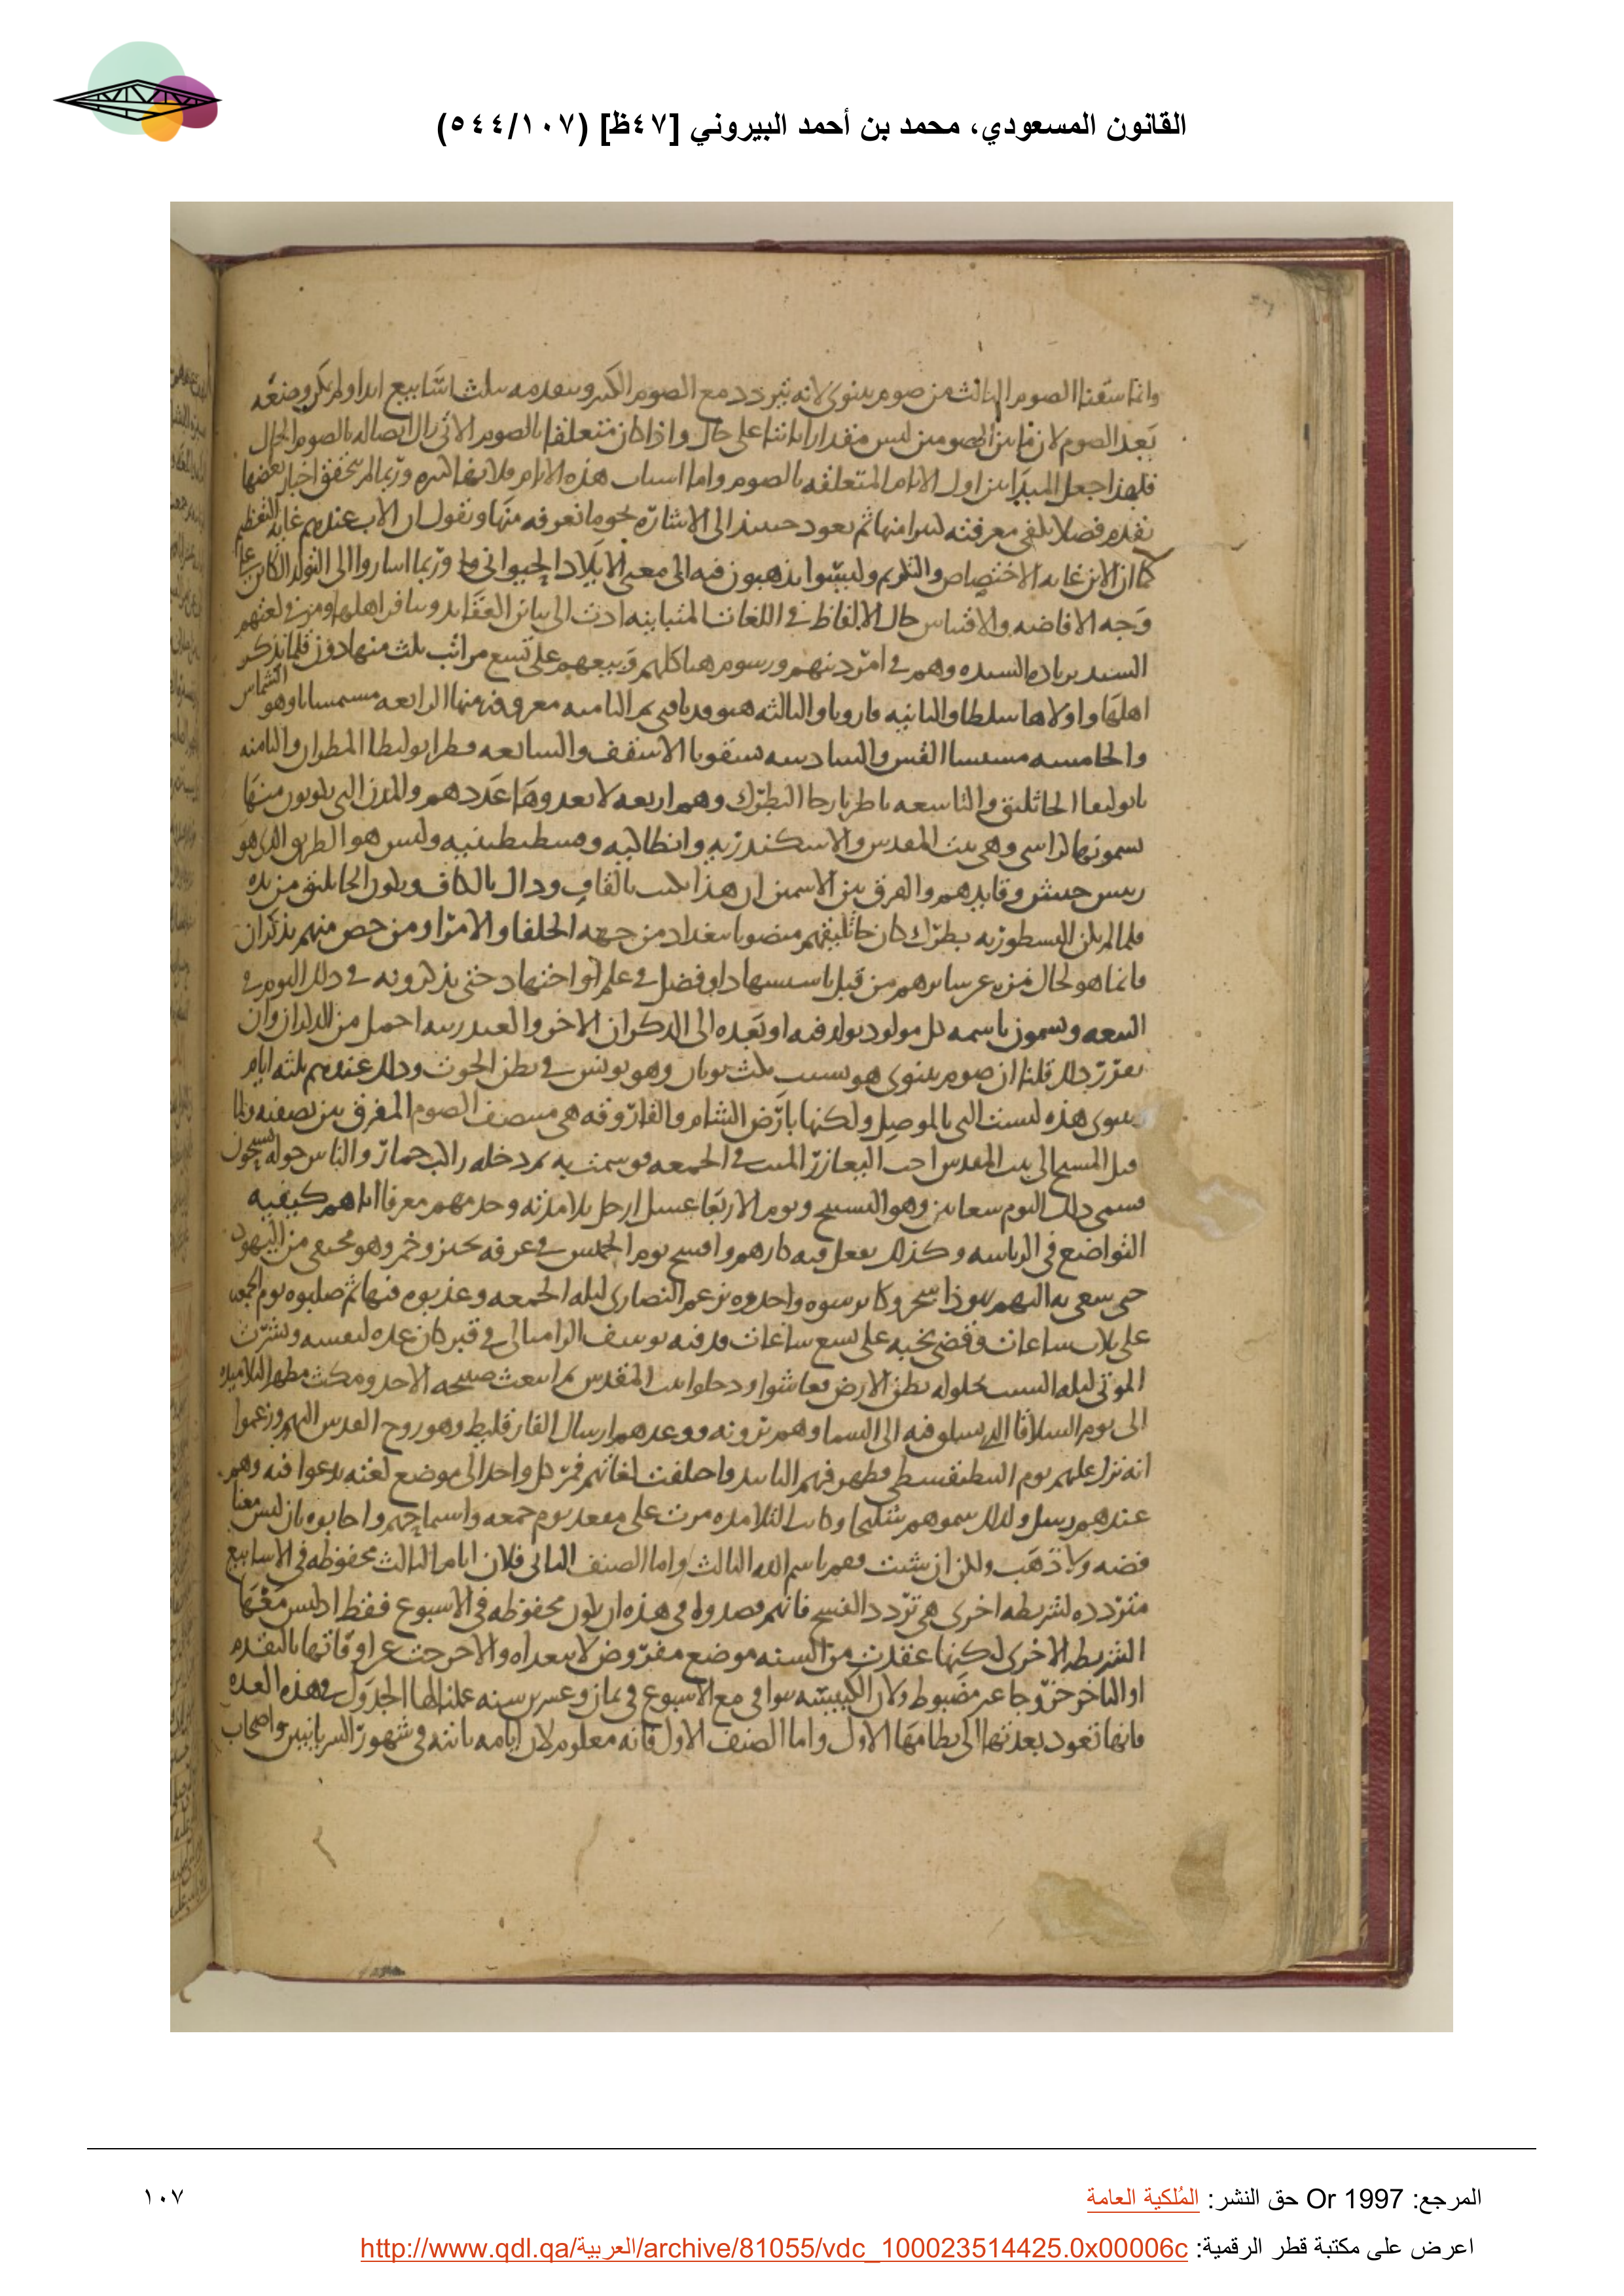 القانون المسعودي، محمد بن أحمد البيروني [٤٧ظ] (٥٤٤/١٠٧)
وانما سقنا الصوم الثالث من صوم نينوى لانه يتردد مع الصوم الكبير ويتقدمه بثلث اسابيع ابدا ولم يكن وضعه
بعد الصوم لان ما بين الصومين ليس مقدارا ثابتا على حال واذا كان متعلقا بالصوم الاتى زال اتصاله بالصوم
فلهذا جعل المبدا من اول الايام المتعلقه بالصوم واما اسباب هذه الايام فلانها كثيره وربما لم تتحقق اخبار بعضها
نقدم فصلا معرفته ثم نعود حينئذ الى الاشاره نحو ما نعرفه منها ونقول ان الاب عندهم غايه التعظيم
كما ان الابن غايه الاختصاص والتكريم وليسوا يذهبون فيه الى معنى الايلاد الحيوانى وربما اشاروا الى التولد الكائن على
وجه الافاضه والاقتباس حال الالفاظ فى اللغات المتباينه ادت الى تباين العقايد اهلها ومن فى لغتهم
السيد وهم فى امر دينهم ورسوم هياكلهم وبيعهم على تسع مراتب ثلث منها دون فلما يذكر
اهلها واولاها سلطا والثانيه قارويا والثالثه ثم الثامنه معروفه منها الرابعه مسمسانا وهو الشماس
والخامسه القس والسادسه الاسقف والسابعه المطران والثامنه
الجاثليق والتاسعه البطرك وهم اربعه لا يعدوها عددهم والمدن التى يكونون منها
يسمونها كراسى وهى بيت المقدس والاسكندريه وانطاكيه وقسطنطينيه وليس هو الطريق الذى هو
رييس جيش وقايدهم والفرق بين الاسمين ان هذا يكتب بالقاف وذاك بالكاف ويكون الجاثليق من يده
فلما لم يكن للنسطوريه بطرك كان جاثليقهم منصوبا ببغداد من جهه الخلفا والامرا ومن خص منهم بذكران
فانما هو لحال من قبل او فضل فى علم او اجتهاد حتى يذكرونه فى ذلك اليوم فى
البيعه ويسمون باسمه كل مولود يولد فيه او بعده الى الذكران الاخر والعيد رتبه اجمل من الذكران وان
تقرر ذلك قلنا ان صوم نينوى هو بسبب مكث يونان وهو يونس فى بطن الحوت وذلك عندهم ثلثه ايام
ونينوى هذه ليست التى بالموصل ولكنها بارض الشام والفاروقه هى منتصف الصوم المفرق بين نصفيه ولما
قبل المسيح الى بيت المقدس احيى العازر الميت فى الجمعه ثم دخله راكب حمار والناس حوله يسبحون
فسمى ذلك اليوم سعانين وهو التسبيح ويوم الاربعا غسل ارجل تلامذته معرفا اياهم كيفيه
التواضع فى الرياسه وكذلك يفعل فيه كبارهم وافسح يوم الخميس فى غرفه بخبز وخمر وهو مختفى من اليهود
حتى سعى به اليهم يهوذا واخذوه بزعم النصارى ليله الجمعه وعذبوه فيها ثم صلبوه يوم الجمعه
على ثلاث ساعات وقضى نحبه على تسع ساعات ودفنه يوسف الرامى فى قبر كان عده لنفسه ونشرت
الموتى ليله السبت بحلوله بطن الارض فعاشوا ودخلوا بيت المقدس ثم انبعث صبيحه الاحد ومكث مظهرا لتلاميذه
الى يوم السلاقا الذى فيه الى السما وهم يرونه ووعدهم ارسال الفارقليط وهو روح القدس اليهم وزعموا
انه نزل عليهم يوم البنطيقسطى وظهر فيهم التاييد واختلفت لغاتهم فمر كل واحد الى موضع لغته يدعوا فيه وهم
عندهم رسل ولذلك سموهم سليحا وكانت التلامذه مرت على مقعد يوم جمعه واجابوه بان ليس معنا
فضه ولا ذهب ولكن ان شئت فقم باسم الله الثالث واما الصنف الثانى فلان ايام الثالث محفوظه فى الاسابيع
متردده لشريطه اخرى هى تردد الفسح فانهم قصدوا فى هذه ان يكون محفوظه فى الاسبوع فقط اذ ليس معها
الشريطه الاخرى لكنها عقدت من السنه موضع مفروض لا يتعداه والاخر اوقاتها بالتقدم
او التاخر خروجا غير مضبوط ولان الكبيسه توافى مع الاسبوع فى ثمان وعشرين سنه عملنا لها الجدول وهذه العده
فانها تعود بعدتها الى نظامها الاول واما الصنف الاول فانه معلوم لان ايامه ثابته فى شهور السريانيين واصحاب
المرجع: Or 1997 حق النشر: المُلكية العامة
١٠٧
اعرض على مكتبة قطر الرقمية: http://www.qdl.qa/العربية/archive/81055/vdc_100023514425.0x00006c